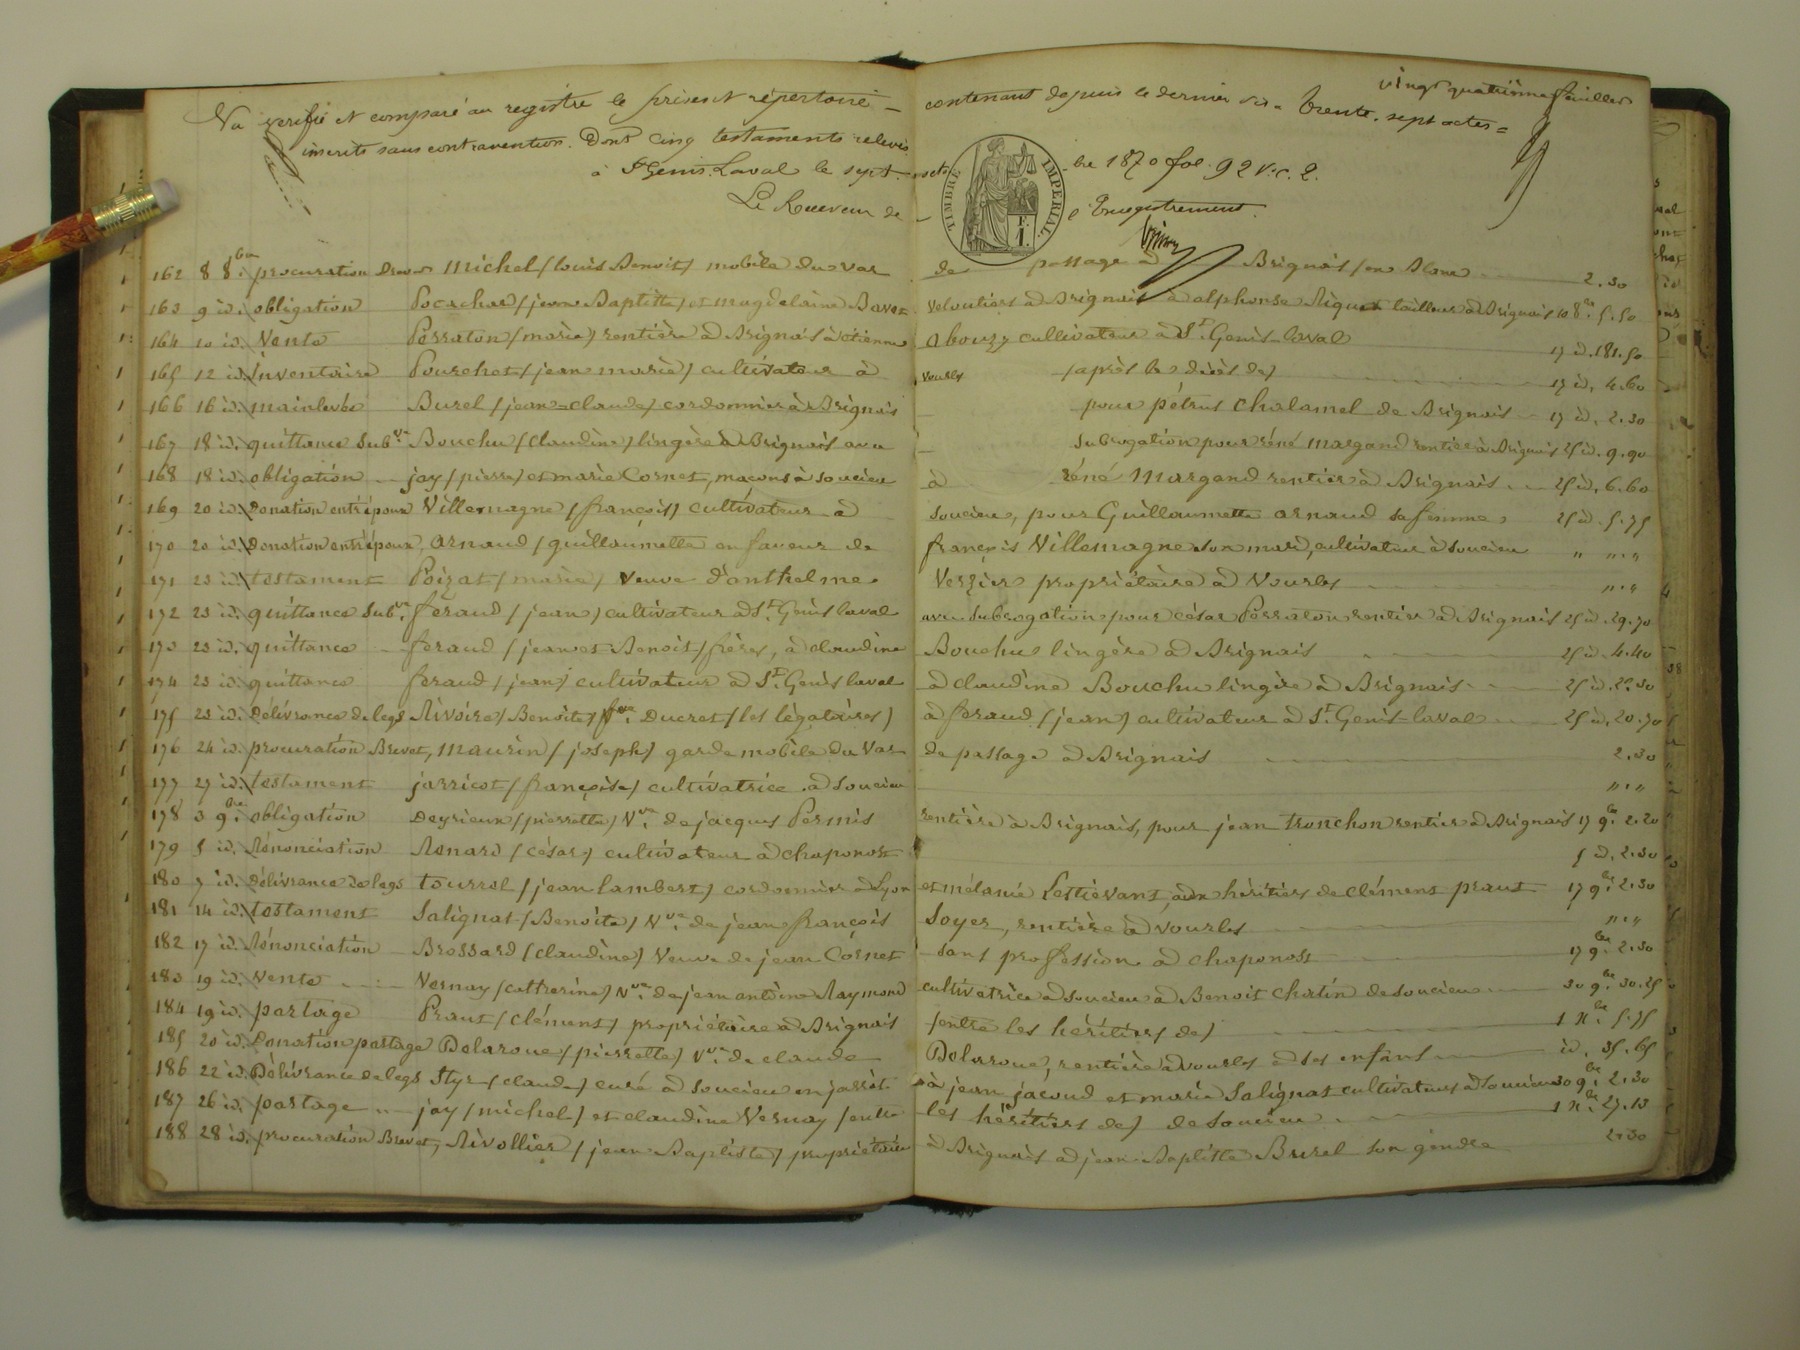 vingt quatrième feuillet
Vu verifié et comparé au registre le présent répertoire contenant depuis le dernier visa trente sept actes
inscrits sans contravention. Dont cinq testaments relevés
à St Genis Laval le sept octobre 1870 fol. 92 v. c. 2.
Le Receveur de l'Enregistrement
TIMBRE IMPERIAL
F. 1.
162 8 8bre procuration Brevet Michel (louis Benoit) mobile du var de passage à Brignais (en Blanc 2.30
163 9 id. obligation Pocachard (jeane Baptiste) et magdelaine Bavet veloutiers à Brignais à alphonse Riquet tailleur à Brignais 10 8bre 5.50
164 10 id. Vente Perraton (marie) rentière à Brignais à étienne Abouzy cultivateur à St Genis-laval 17 id. 181.50
165 12 id. inventaire Pourchet (jean marie) cultivateur à vourles (après le décès de) 17 id. 4.60
166 16 id. mainlevée Burel (jean-claude) cordonnier à Brignais pour pétrus chalamel de Brignais 17 id. 2.30
167 18 id. quittance Subve Bouchu (claudine) lingère à Brignais avec subrogation pour réné margand rentier à Brignais 25 id. 9.90
168 18 id. obligation jay (pierre) et marie Cornet, maçons à soucieu à réné Margand rentier à Brignais 25 id. 6.60
169 20 id. Donation entre époux Villemagne (françois) cultivateur à soucieu, pour Guillaumette arnaud sa femme 25 id. 5.75
170 20 id. Donation entre époux, arnaud (guillaumette en faveur de françois Villemagne son mari, cultivateur à soucieu " "."
171 23 id. testament Poizat (marie) veuve d'anthelme Verzier propriétaire à Vourles "."
172 23 id. quittance Subve féraud (jean) cultivateur à St Genis laval avec subrogation pour césar Perraton rentier à Brignais 25 id. 29.70
173 23 id. quittance feraud (jean et Benoit) frères, à claudine Bouchu lingère à Brignais 25 id. 4.40
174 23 id. quittance feraud (jean) cultivateur à St Genis laval à claudine Bouchu lingère à Brignais 25 id. 2.30
175 23 id. Délivrance de legs Rivoire (Benoite) Vve Ducret (les légataires) à feraud (jean) cultivateur à St Genis-laval 25 id. 20.70
176 24 id. procuration Brevet, Maurin (joseph) garde mobile du Var de passage à Brignais 2.30
177 27 id. testament jarricot (françoise) cultivatrice à Soucieu "."
178 3 9bre obligation Deyrieux (pierrette) Vve de jacques Permis rentière à Brignais, pour jean tronchon rentier à Brignais 17 9bre 2.20
179 5 id. Rénonciation Renard (césar) cultivateur à chaponost 5 id. 2.30
180 7 id. Délivrance de legs tourrel (jean lambert) cordonnier à Lyon et mélanie Lestievant, aux héritiers de clément praut 17 9bre 2.30
181 14 id. testament Salignat (Benoite) Vve de jean françois Soyer, rentière à vourles "."
182 17 id. Rénonciation Brossard (claudine) Veuve de jean Cornet sans profession à chaponost 17 9bre 2.30
183 19 id. Vente Vernay (catherine) Vve de jean antoine Raymond cultivatrice à soucieu à Benoit chatin de soucieu 30 9bre 30.25
184 19 id. partage Praut (clément) propriétaire à Brignais (entre les héritiers de) 1 Xbre 5.75
185 20 id. Donation partage Delaroue (pierrette) Vve de claude Delaroue, rentière à vourles à ses enfans id. 35.65
186 22 id. Délivrance de legs Styr (claude) curé à soucieu en jarrêt à jean jacoud et marie Salignat cultivateurs à Soucieu 30 9bre 2.30
187 26 id. partage jay (michel) et claudine Vernay (entre les héritiers de) de Soucieu 1 Xbre 27.13
188 28 id. procuration Brevet, Rivollier (jean-Baptiste) propriétaire à Brignais à jean-Baptiste Burel son gendre 2.30